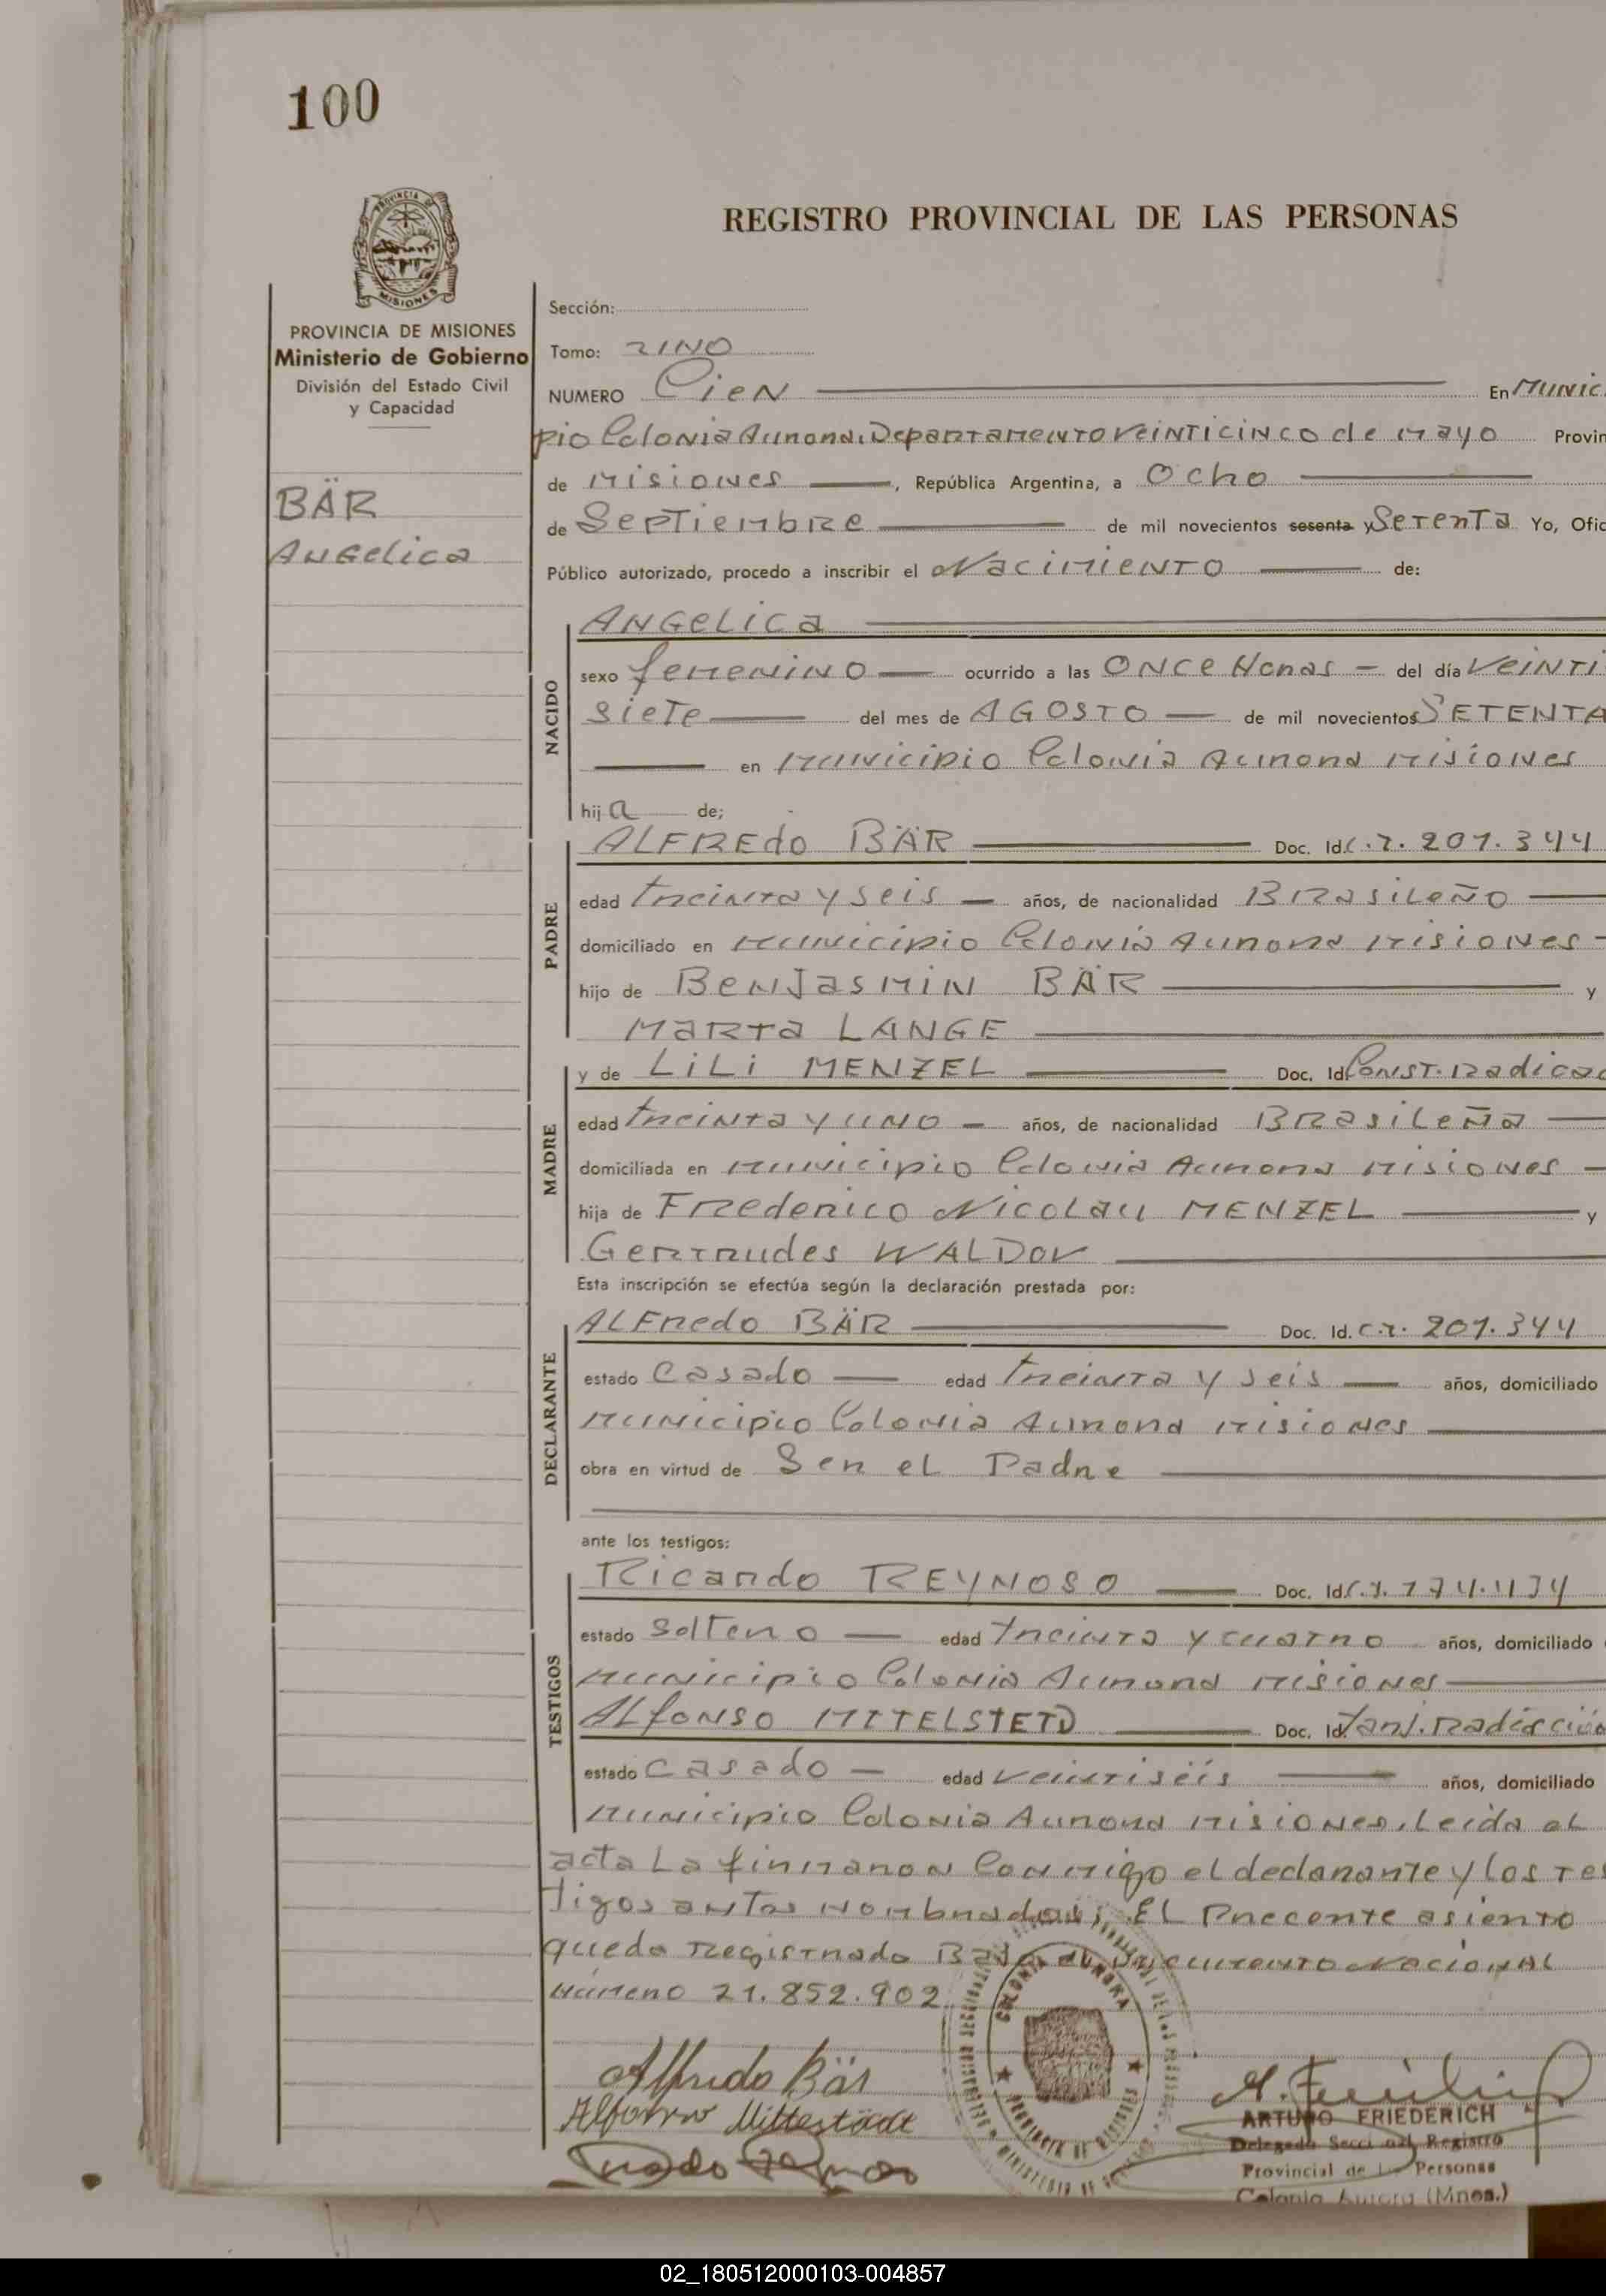 100
REGISTRO PROVINCIAL DE LAS PERSONAS
PROVINCIA DE MISIONES
MISIONES
PROVINCIA DE MISIONES
Ministerio de Gobierno
División del Estado Civil
y Capacidad
BÄR
Angelica
Sección:
Tomo: UNO
NUMERO Cien En Munic
pio Colonia Aurora, Departamento Veinticinco de Mayo Provin
de Misiones, República Argentina, a Ocho
de Septiembre de mil novecientos sesenta y Setenta Yo, Ofic
Público autorizado, procedo a inscribir el Nacimiento de:
NACIDO
Angelica
sexo femenino ocurrido a las Once Horas del día Veinti
siete del mes de AGOSTO de mil novecientos SETENTA
en Municipio Colonia Aurora Misiones
hija de;
PADRE
ALFREdo BÄR Doc. Id. C.I. 201.344
edad treinta y seis años, de nacionalidad Brasileño
domiciliado en Municipio Colonia Aurora Misiones
hijo de Benjasmin BÄR y
Marta LANGE
MADRE
y de LiLi MENZEL Doc. Id. Const. Radicac
edad treinta y uno años, de nacionalidad Brasileña
domiciliada en Municipio Colonia Aurora Misiones
hija de Frederico Nicolau MENZEL y
Gertrudes WALDOV
Esta inscripción se efectúa según la declaración prestada por:
DECLARANTE
ALFredo BÄR Doc. Id. C.I. 201.344
estado Casado edad treinta y seis años, domiciliado
Municipio Colonia Aurora Misiones
obra en virtud de Ser el Padre
ante los testigos:
TESTIGOS
Ricardo REYNOSO Doc. Id. C.I.
estado Soltero edad treinta y cuatro años, domiciliado
Municipio Colonia Aurora Misiones
ALfonso MITELSTETD Doc. Id. Radicción
estado Casado edad veintiséis años, domiciliado
Municipio Colonia Aurora Misiones. Leida el
acta La firmaron Conmigo el declarante y los tes
tigos antes nombrados; EL Precente asiento
queda Registrado Bajo el Documento Nacional
número 21.852.902
Alfredo Bär
Alfonso Mittestädt
COLONIA AURORA
PROVINCIA DE MISIONES
ARTURO FRIEDERICH
Delegado Seccional Registro
Provincial de las Personas
Colonia Aurora (Mnes.)
02_180512000103-004857